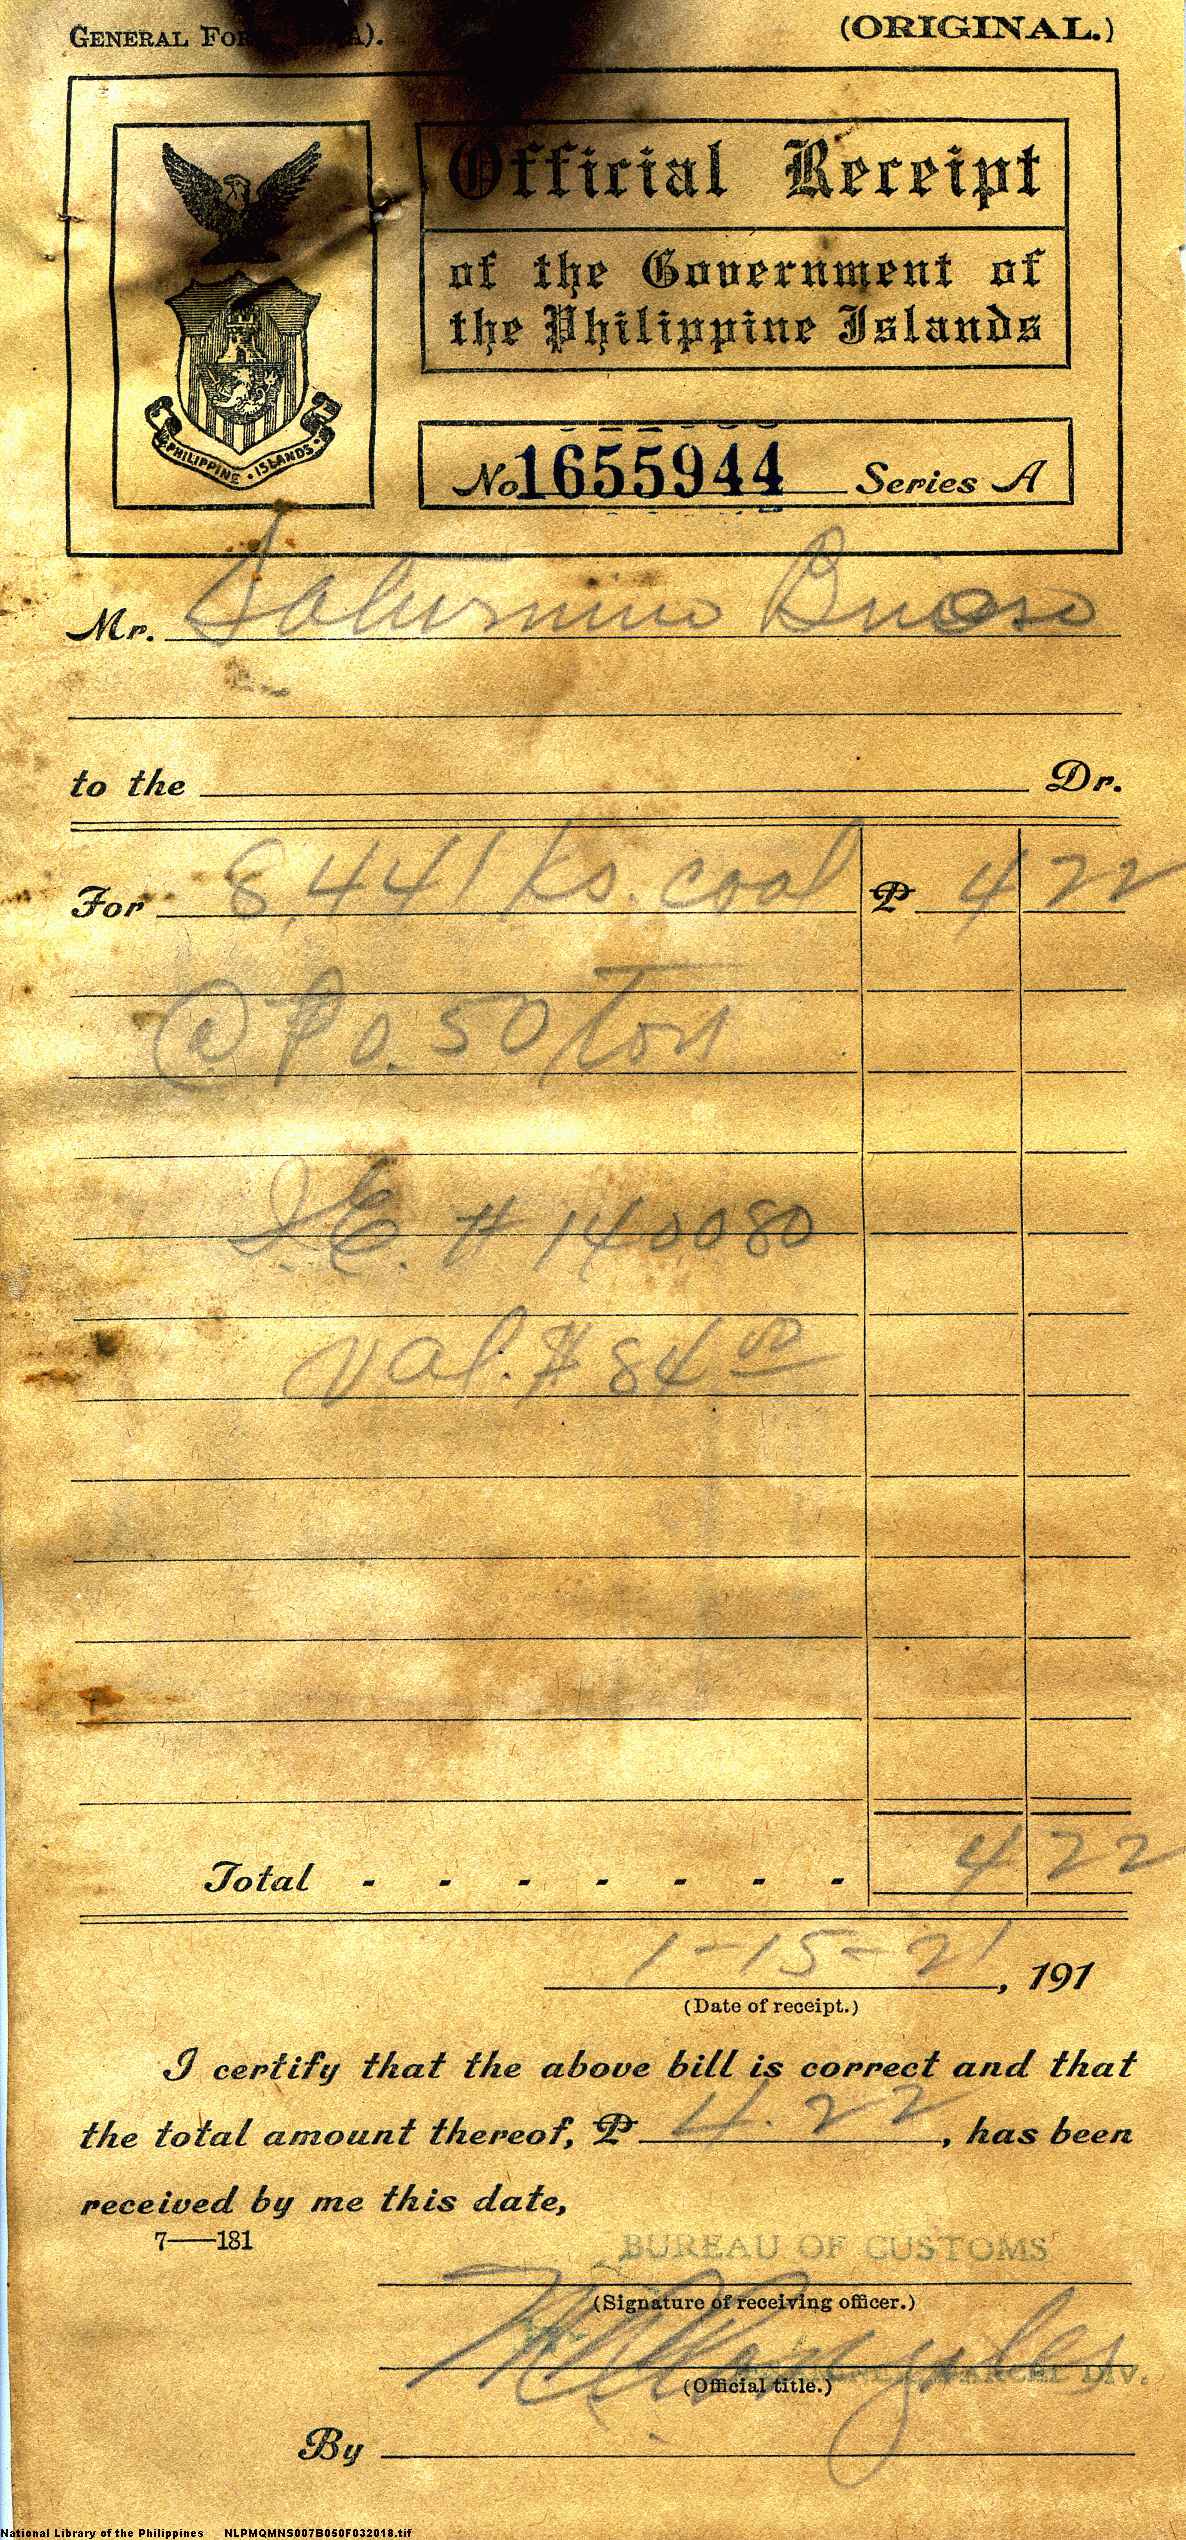 GENERAL
(ORIGINAL.)
Official Receipt
of the Government of
the Philippine Islands
PHILIPPINE · ISLANDS
No 1655944 Series A
Mr. Saturnino
to the Dr.
For 8,441 ks. coal ₱ 4 22
@ ₱0.50/Ton
I.E. # 140080
Val. $ 84 00
Total - - - - - - - 4 22
1-15-21, 191
(Date of receipt.)
I certify that the above bill is correct and that
the total amount thereof, ₱ 4.22, has been
received by me this date,
7——181
BUREAU OF CUSTOMS
(Signature of receiving officer.)
DIV.
(Official title.)
By
National Library of the Philippines NLPMQMNS007B050F032018.tif